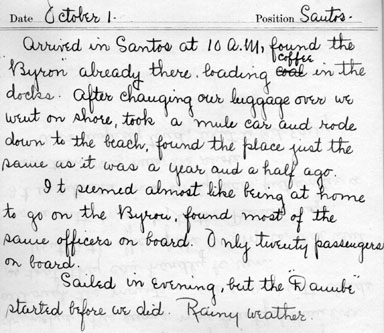 Date October 1. Position Santos.
Arrived in Santos at 10 A.M., found the
"Byron" already there loading coffee in the
docks. After changing our luggage over we
went on shore, took a mule car and rode
down to the beach, found the place just the
same as it was a year and a half ago.
It seemed almost like being at home
to go on the Byron, found most of the
same officers on board. Only twenty passengers
on board.
Sailed in evening, but the "Danube"
started before we did. Rainy weather